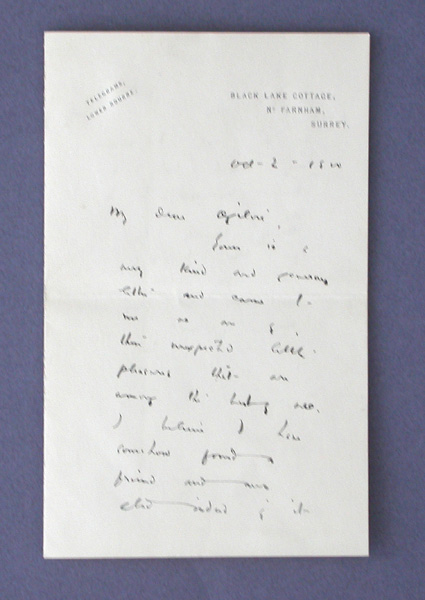 TELEGRAMS,
LOWER BOURNE.
BLACK LANE COTTAGE,
Nr FARNHAM,
SURREY.
Oct - 2 -
My dear Ogilvie,
Yours is a
very kind and generous
letter and came to
me as one of
those unexpected little
pleasures that are
among the best
I believe I have
somehow found a
friend and am
glad indeed of it